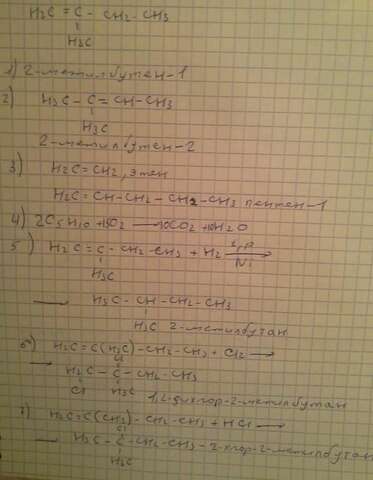 H2C = C - CH2 - CH3
H3C
1) 2-метилбутен-1
2) H3C - C = CH - CH3
H3C
2-метилбутен-2
3) H2C = CH2, этен
H2C = CH - CH2 - CH2 - CH3 пентен-1
4) 2C5H10 + 15O2 → 10CO2 + 10H2O
5) H2C = C - CH2 - CH3 + H2 → Ni
H3C
→ H3C - CH - CH2 - CH3
H3C 2-метилбутан
6) H2C = C(H3C) - CH2 - CH3 + Cl2 →
Cl
→ H2C - C - CH2 - CH3
Cl H3C 1,2-дихлор-2-метилбутан
7) H2C = C(CH3) - CH2 - CH3 + HCl →
Cl
→ H3C - C - CH2 - CH3 - 2-хлор-2-метилбутан
H3C